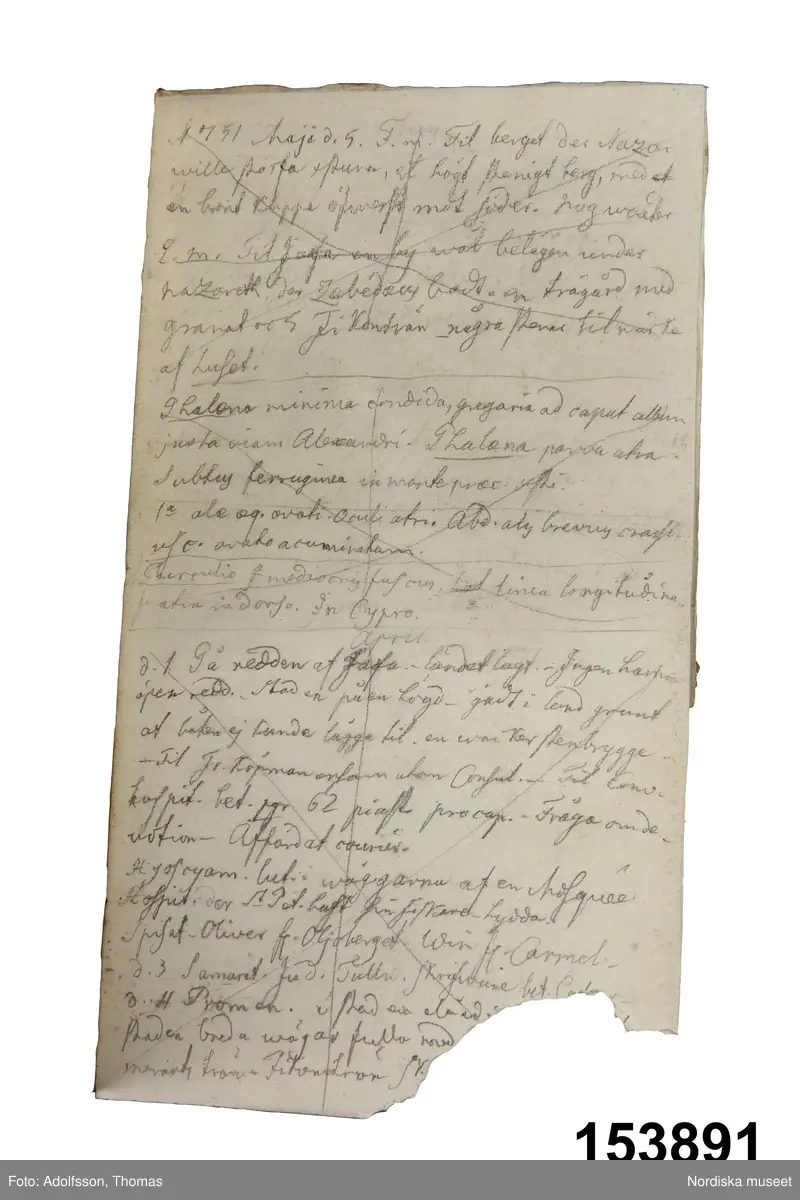 1751 Maji d. 5. F. m. Til berget der Nazar
wille störta +stum, et högt stenigt berg, med et
en brant kloppa öfwerst mot söder. nog wäxter
E. m. Til Jafa en by wäl belägen under
nazareth, der Zebedæus bodt. en trägård med
granat och Fikonträn några stenar til märke
af huset.
Phalæna minima candida, gregaria ad caput album
juxta viam Alexandri. Phalæna parva atra
subtus ferruginea in monte præc. +sti.
1a alæ æq. ovati. Oculi atri. Abd. alis brevius crass.
ovato acuminatum.
Curculio mediocris fuscus, linea longitudina
atra in dorso. In Cypro.
April
d. 1 På redden af Jafa - landet lågt. - Ingen hamn
öpen redd. - Staden på en högd - gådt i land grunt
at båten ej kunde lägga til. en wacker stenbrygge
- Til Fr. Köpman ensam utan Consul. - Til Conv.
hospit. bet. 62 piast pro cap. - Fråga om de-
votion - Affärdat courier.
Hyoscyam. lut. i wäggarna af en Mosquée
Hospit. der St Pet. haft sin fiskare hydda.
Spisat - Oliver fr. Oljoberget. Win fr. Carmel -
d. 3 Samarit. Jud. Tulln. skrifware bet.
d. 4 Promen. i stad en eländ.
staden breda wägar fulla med
trän - Fikonträn
153891
Foto: Adolfsson, Thomas
Nordiska museet